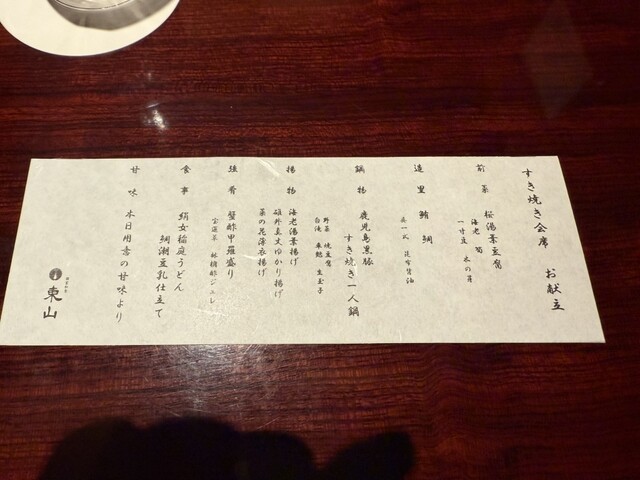 すき焼き会席 お献立
前菜 桜湯葉豆腐
海老 筍
一寸豆 木の芽
造里 鮪 鯛
昆布醤油
鍋物 鹿児島黒豚
すき焼き一人鍋
野菜 焼豆腐
白滝 車麩 生玉子
揚物 海老湯葉揚げ
雄外皮ゆかり揚げ
菜の花薄衣揚げ
強肴 蟹酢甲羅盛り
林檎酢ジュレ
食事 絹女稲庭うどん
鯛潮豆乳仕立て
甘味 本日用意の甘味より
東山